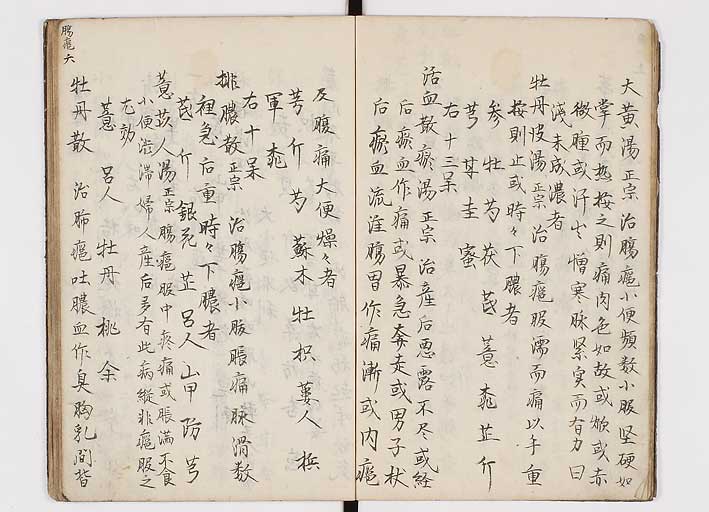 大黄湯正宗 治腸癰小便頻数小腹坚硬如
掌而热按之則痛肉色如故或焮或赤
微腫或汗出憎寒脉緊実而有力日
浅未成濃者
牡丹皮湯正宗 治腸癰腹濡而痛以手重
按則止或時々下膿者
参 牡 芍 茯 芪 薏 桃 芷 斤
芎 甘 圭 蜜
右十三味
活血散瘀湯 正宗 治産后悪露不尽或経
后瘀血作痛或暴急奔走或男子杖
后瘀血流注腸胃作痛漸或内癰
及腹痛大便燥々者
芎 斤 芍 蘇木 牡 枳 蔞人 梹
軍 桃
右十味
排膿散正宗 治腸癰小腹脹痛脉滑数
裡急后重時々下膿者
芪 斤 銀花 芷 呂人 山甲 防 芎
薏苡人湯正宗 腸癰腹中疼痛或脹満不食
小便澁滞婦人産后多有此病縦非癰服之
尤効
薏 呂人 牡丹 桃
牡丹散 治肺癰吐膿血作臭胸乳間皆
腸癰六